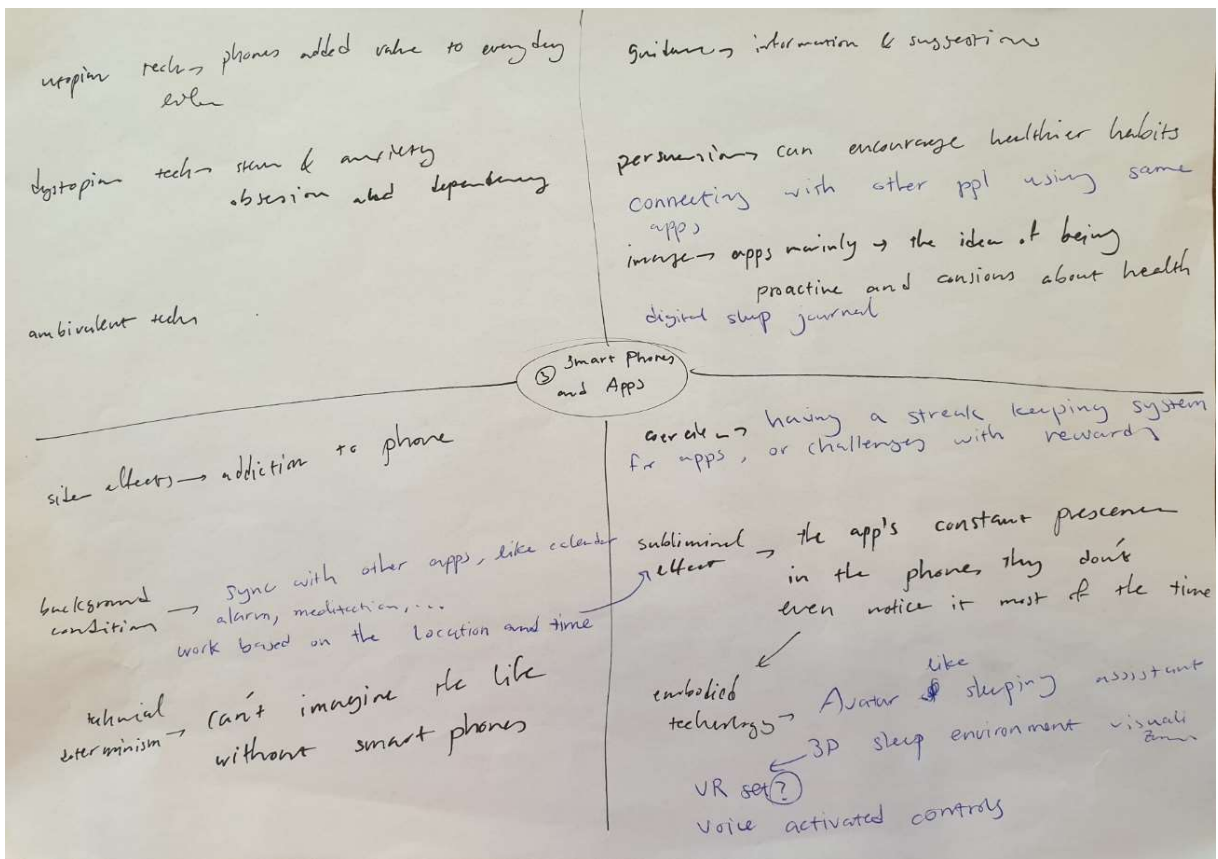 utopian tech → phones added value to everyday
dystopian tech → & anxiety
obsession and dependency
ambivalent tech
guidance → information & suggestions
persuasion → can encourage healthier habits
connecting with other ppl using same
apps
image → apps mainly → the idea of being
proactive and consious about health
digital sleep journal
⑤ Smart Phones
and Apps
side effects → addiction to phone
background
condition → Sync with other apps, like calendar
alarm, meditation, ...
work based on the location and time
technical
determinism → can't imagine the life
without smart phones
→ having a streak keeping system
for apps, or challenges with rewards
subliminal
effect → the app's constant prescence
in the phones, they don't
even notice it most of the time
embodied
technology → Avatar like sleeping assistant
3D sleep environment
VR set ?
Voice activated controls